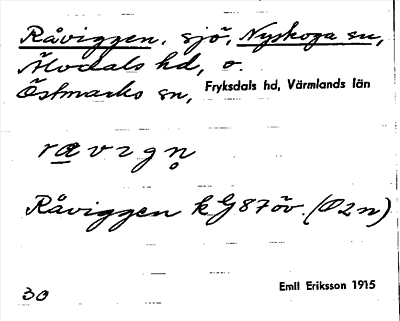 Råviggen, sjö, Nyskoga sn,
Älvdals hd, o.
Östmarks sn, Fryksdals hd, Värmlands län
rævıgn̥
Råviggen kG87öv. (Ö2n)
30
Emil Eriksson 1915